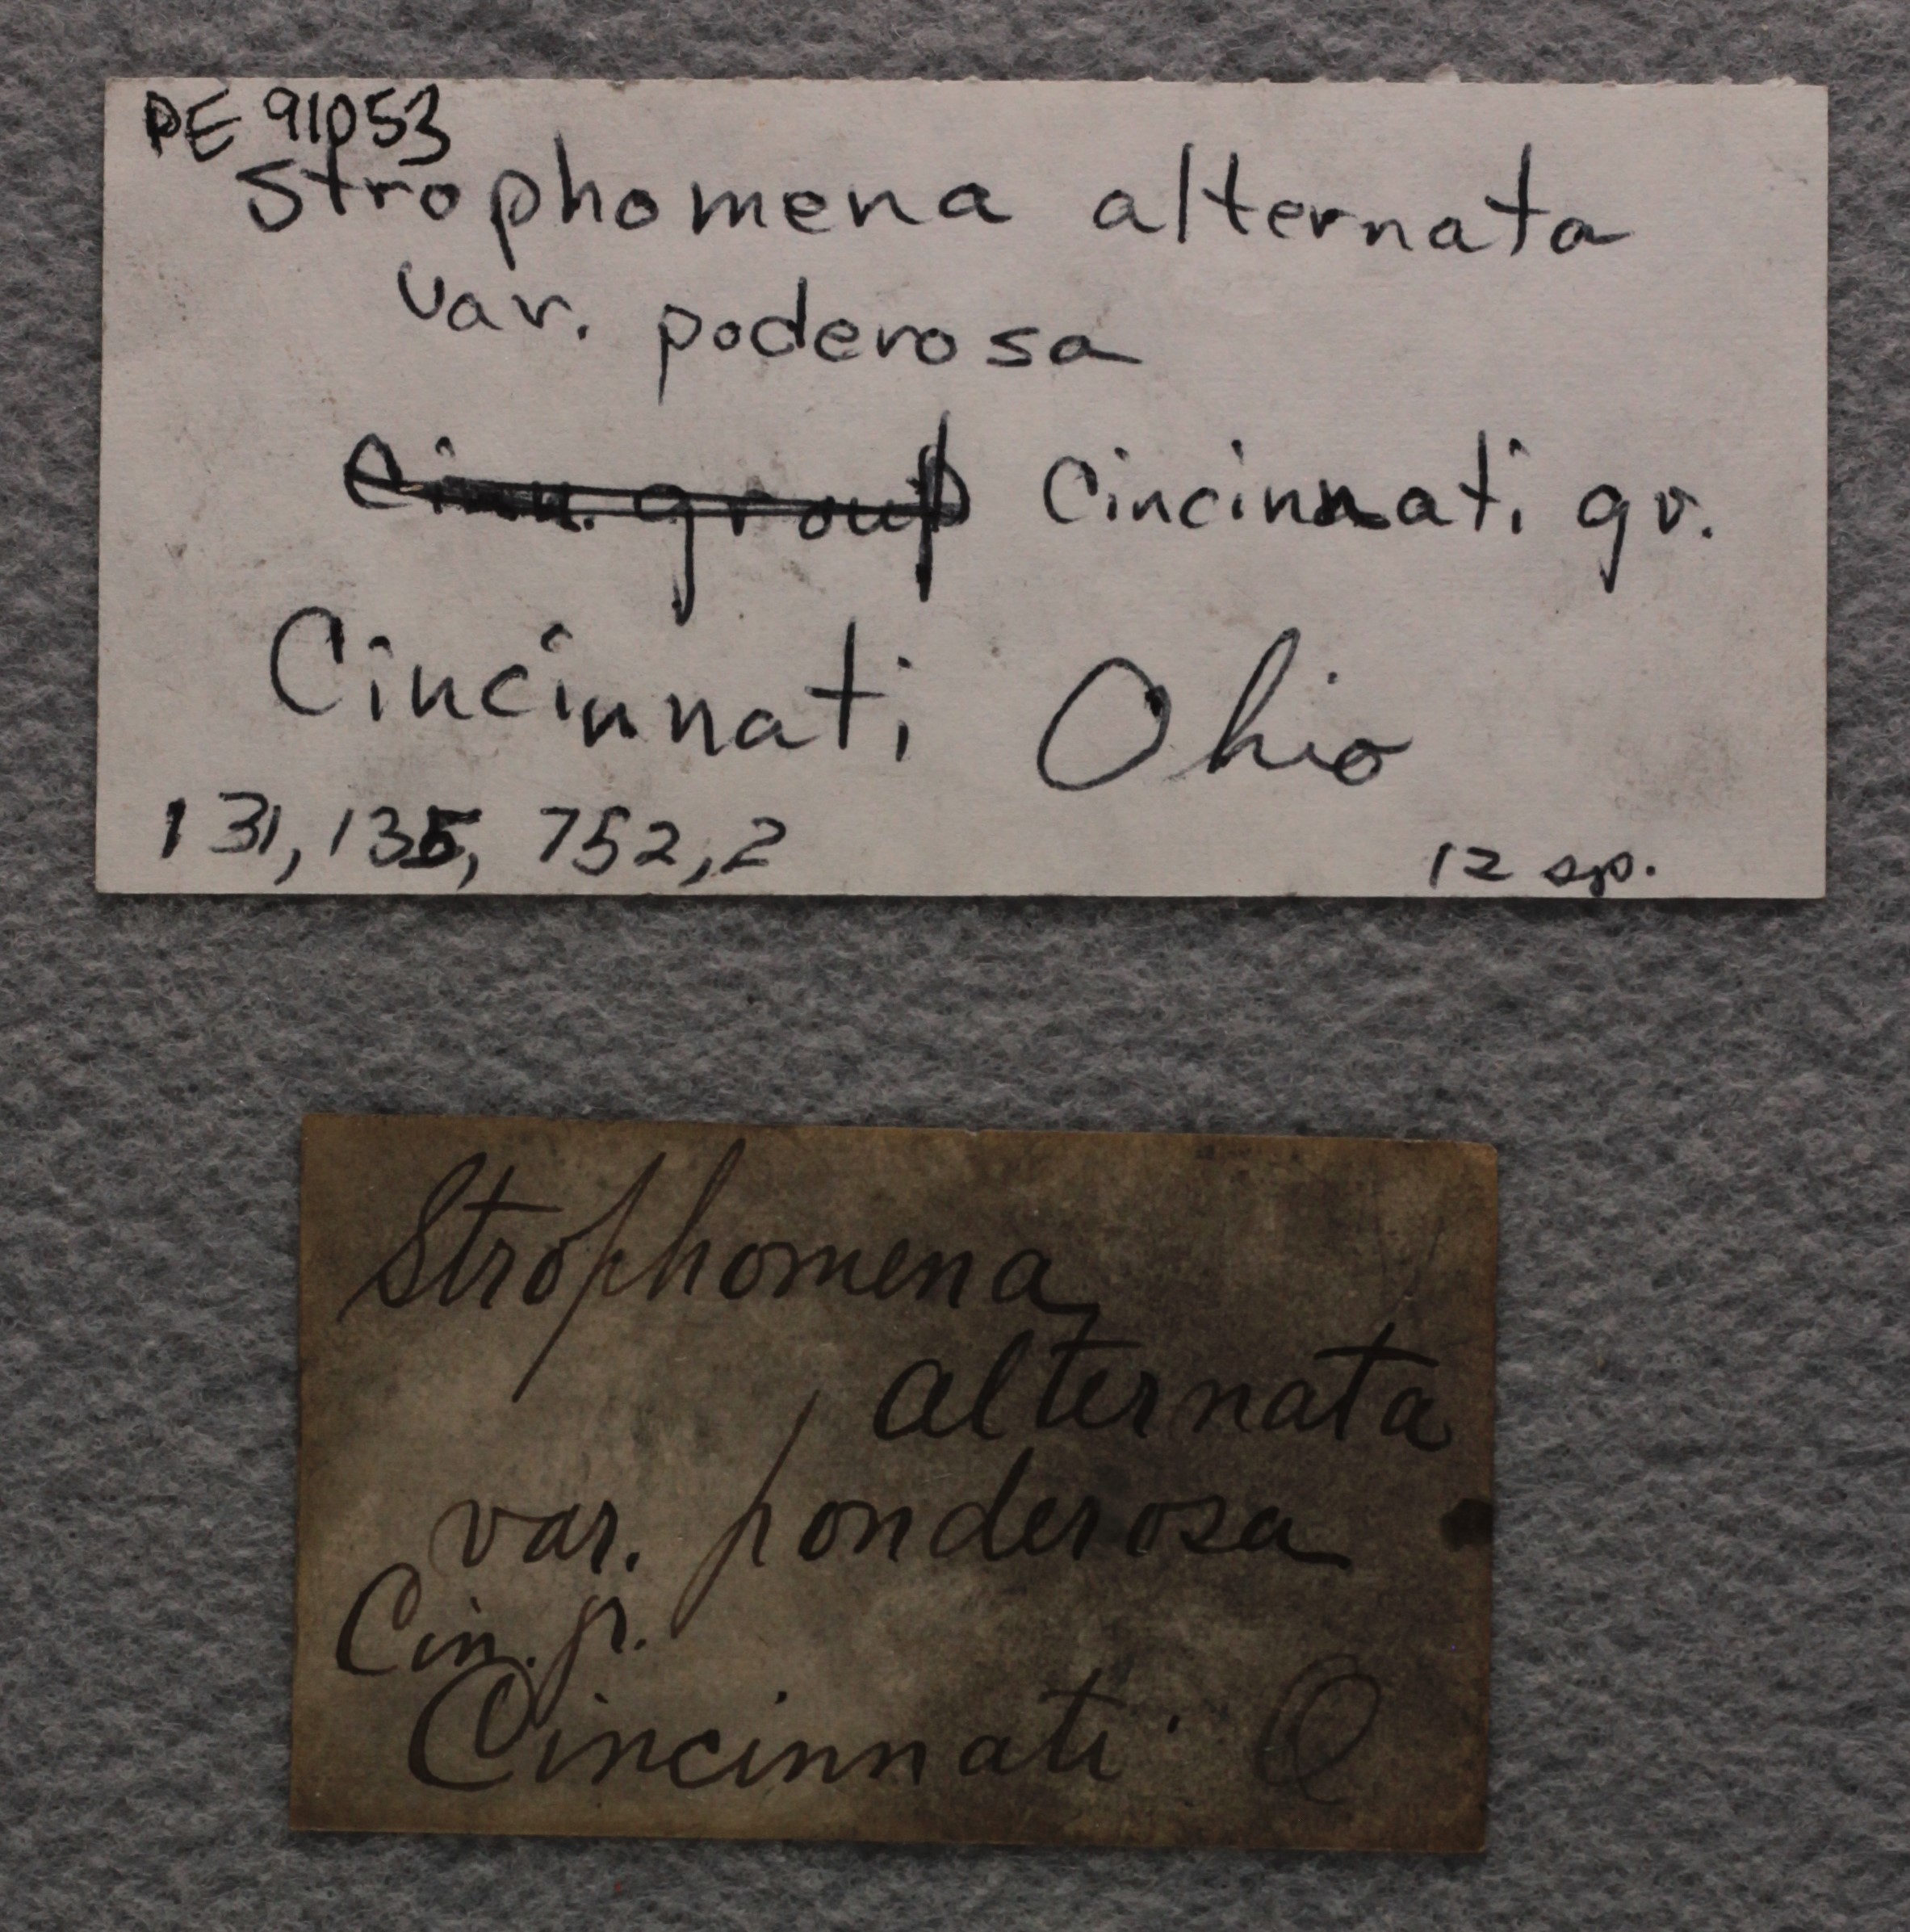 PE 91053
Strophomena alternata
var. poderosa
Cinn. group Cincinnati gr.
Cincinnati Ohio
131, 135, 752, 2
12 sp.
Strophomena
alternata
var. ponderosa
Cin. gr.
Cincinnati O